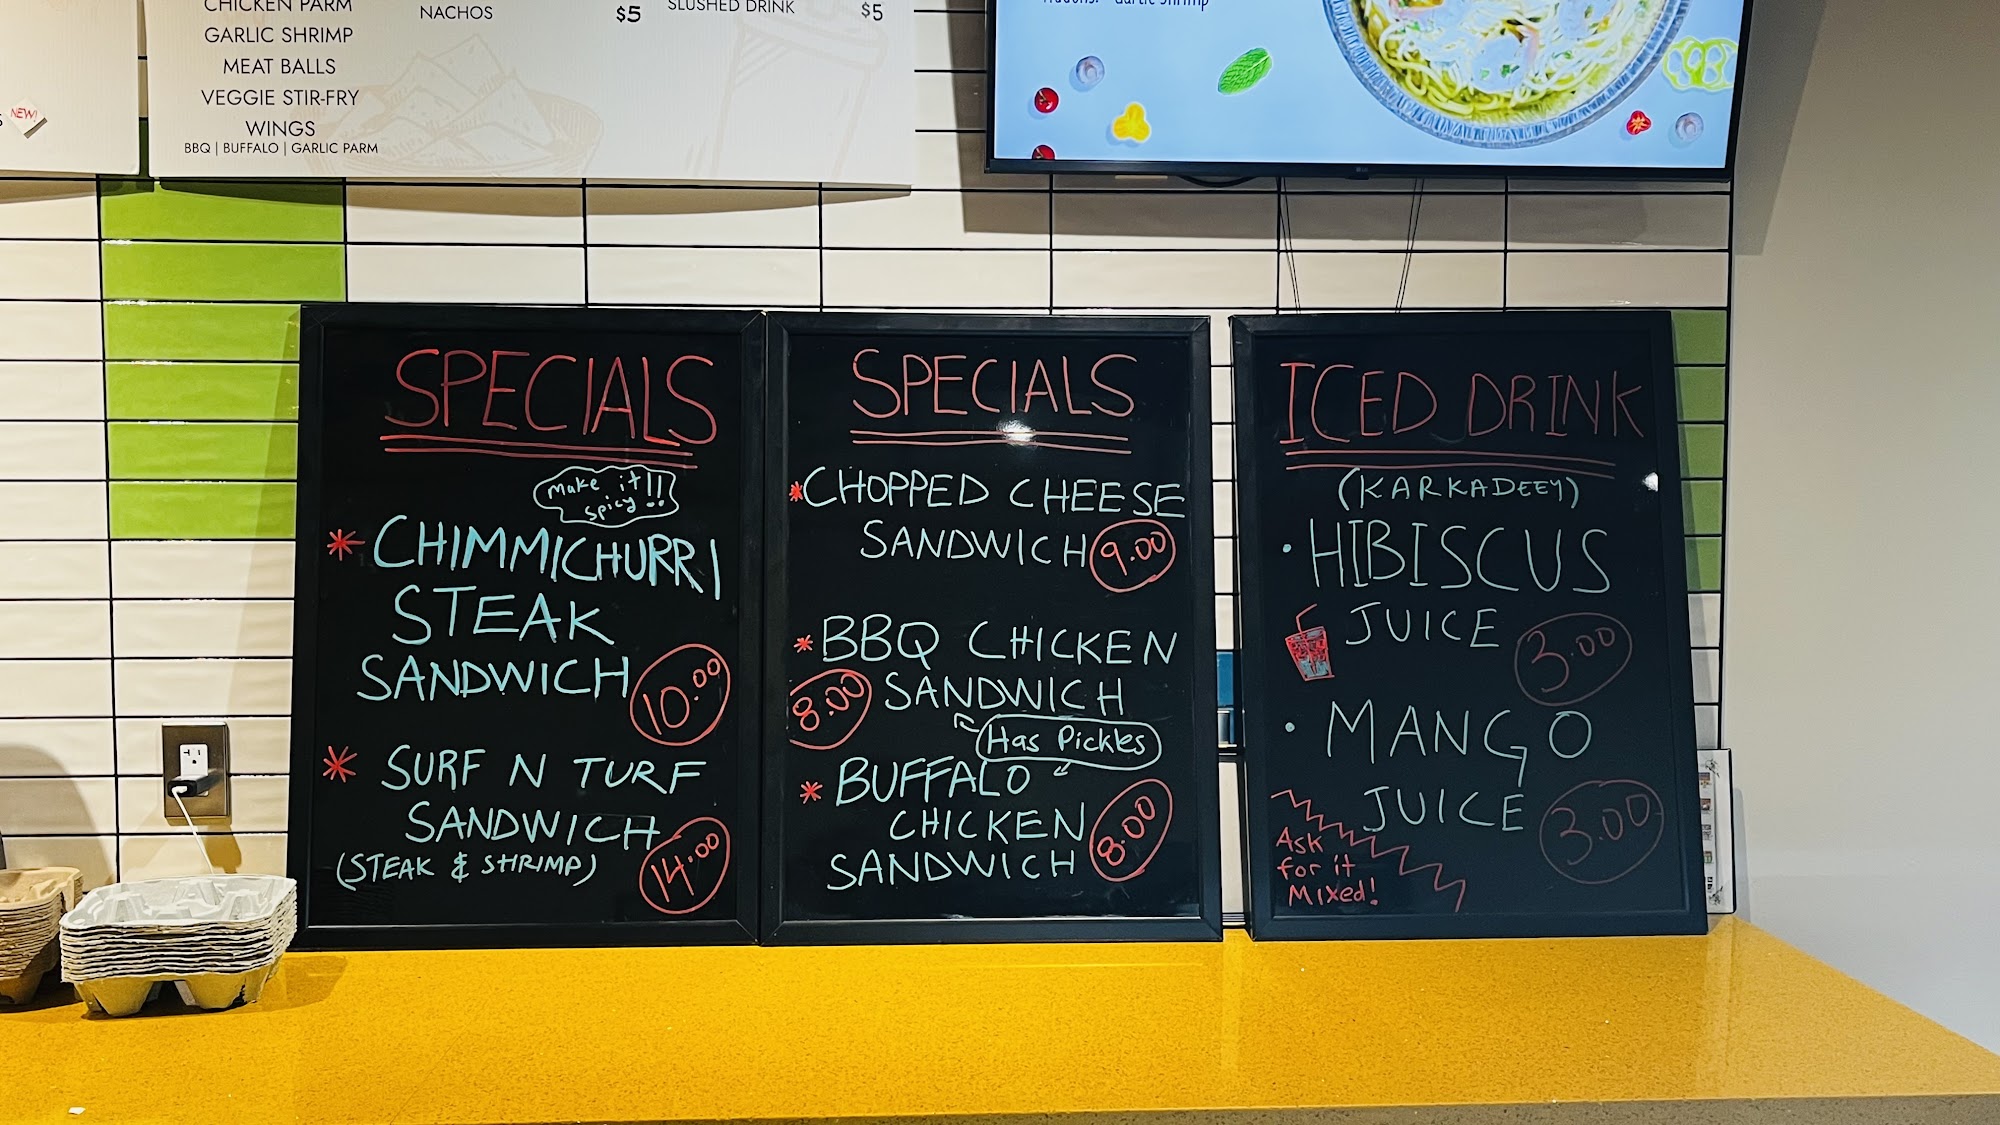 CHICKEN PARM
GARLIC SHRIMP
MEAT BALLS
VEGGIE STIR-FRY
WINGS
BBQ | BUFFALO | GARLIC PARM
NEW!
NACHOS $5
SLUSHED DRINK $5
Garlic Shrimp
SPECIALS
make it!!
spicy
* CHIMMICHURRI
STEAK
SANDWICH 10.00
* SURF N TURF
SANDWICH
(STEAK & SHRIMP) 14.00
SPECIALS
*CHOPPED CHEESE
SANDWICH 9.00
*BBQ CHICKEN
8.00 SANDWICH
Has Pickles
* BUFFALO
CHICKEN
SANDWICH 8.00
ICED DRINK
(KARKADEEY)
• HIBISCUS
JUICE 3.00
• MANGO
JUICE 3.00
Ask
for it
Mixed!